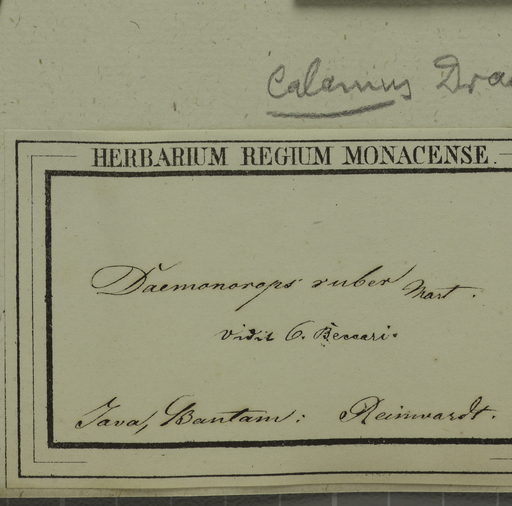 Calamus Dra
HERBARIUM REGIUM MONACENSE.
Daemonorops ruber Mart.
Vidit O. Beccari.
Java, Bantam: Reinwardt.